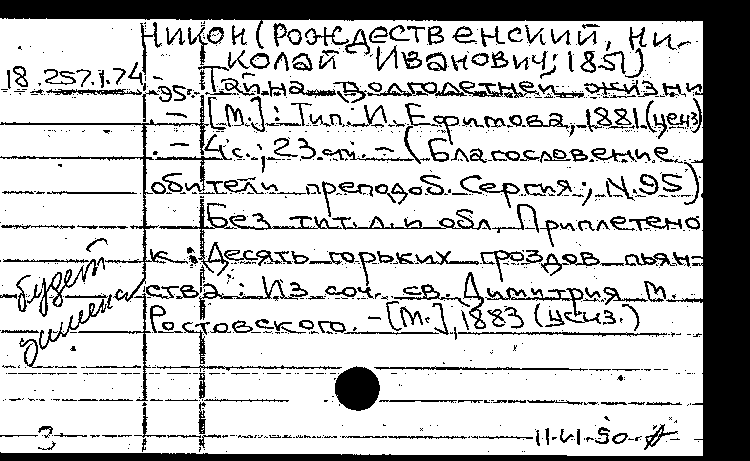 Никон (Рождественский, Ни-
колай Иванович; 1851)
18.257.1.74-
-95. Тайна долголетней жизни
. – [М.]: Тип. И. Ефимова, 1881 (ценз)
. – 4 с.; 23 см. – (Благословение
обители преподоб. Сергия; N.95).
Без тит. л. и обл. Приплетено
к: Десять горьких гроздов пьян-
ства: Из соч. св. Димитрия М.
Ростовского. – [М.], 1883 (ценз.)
будет
3
11-VI-50